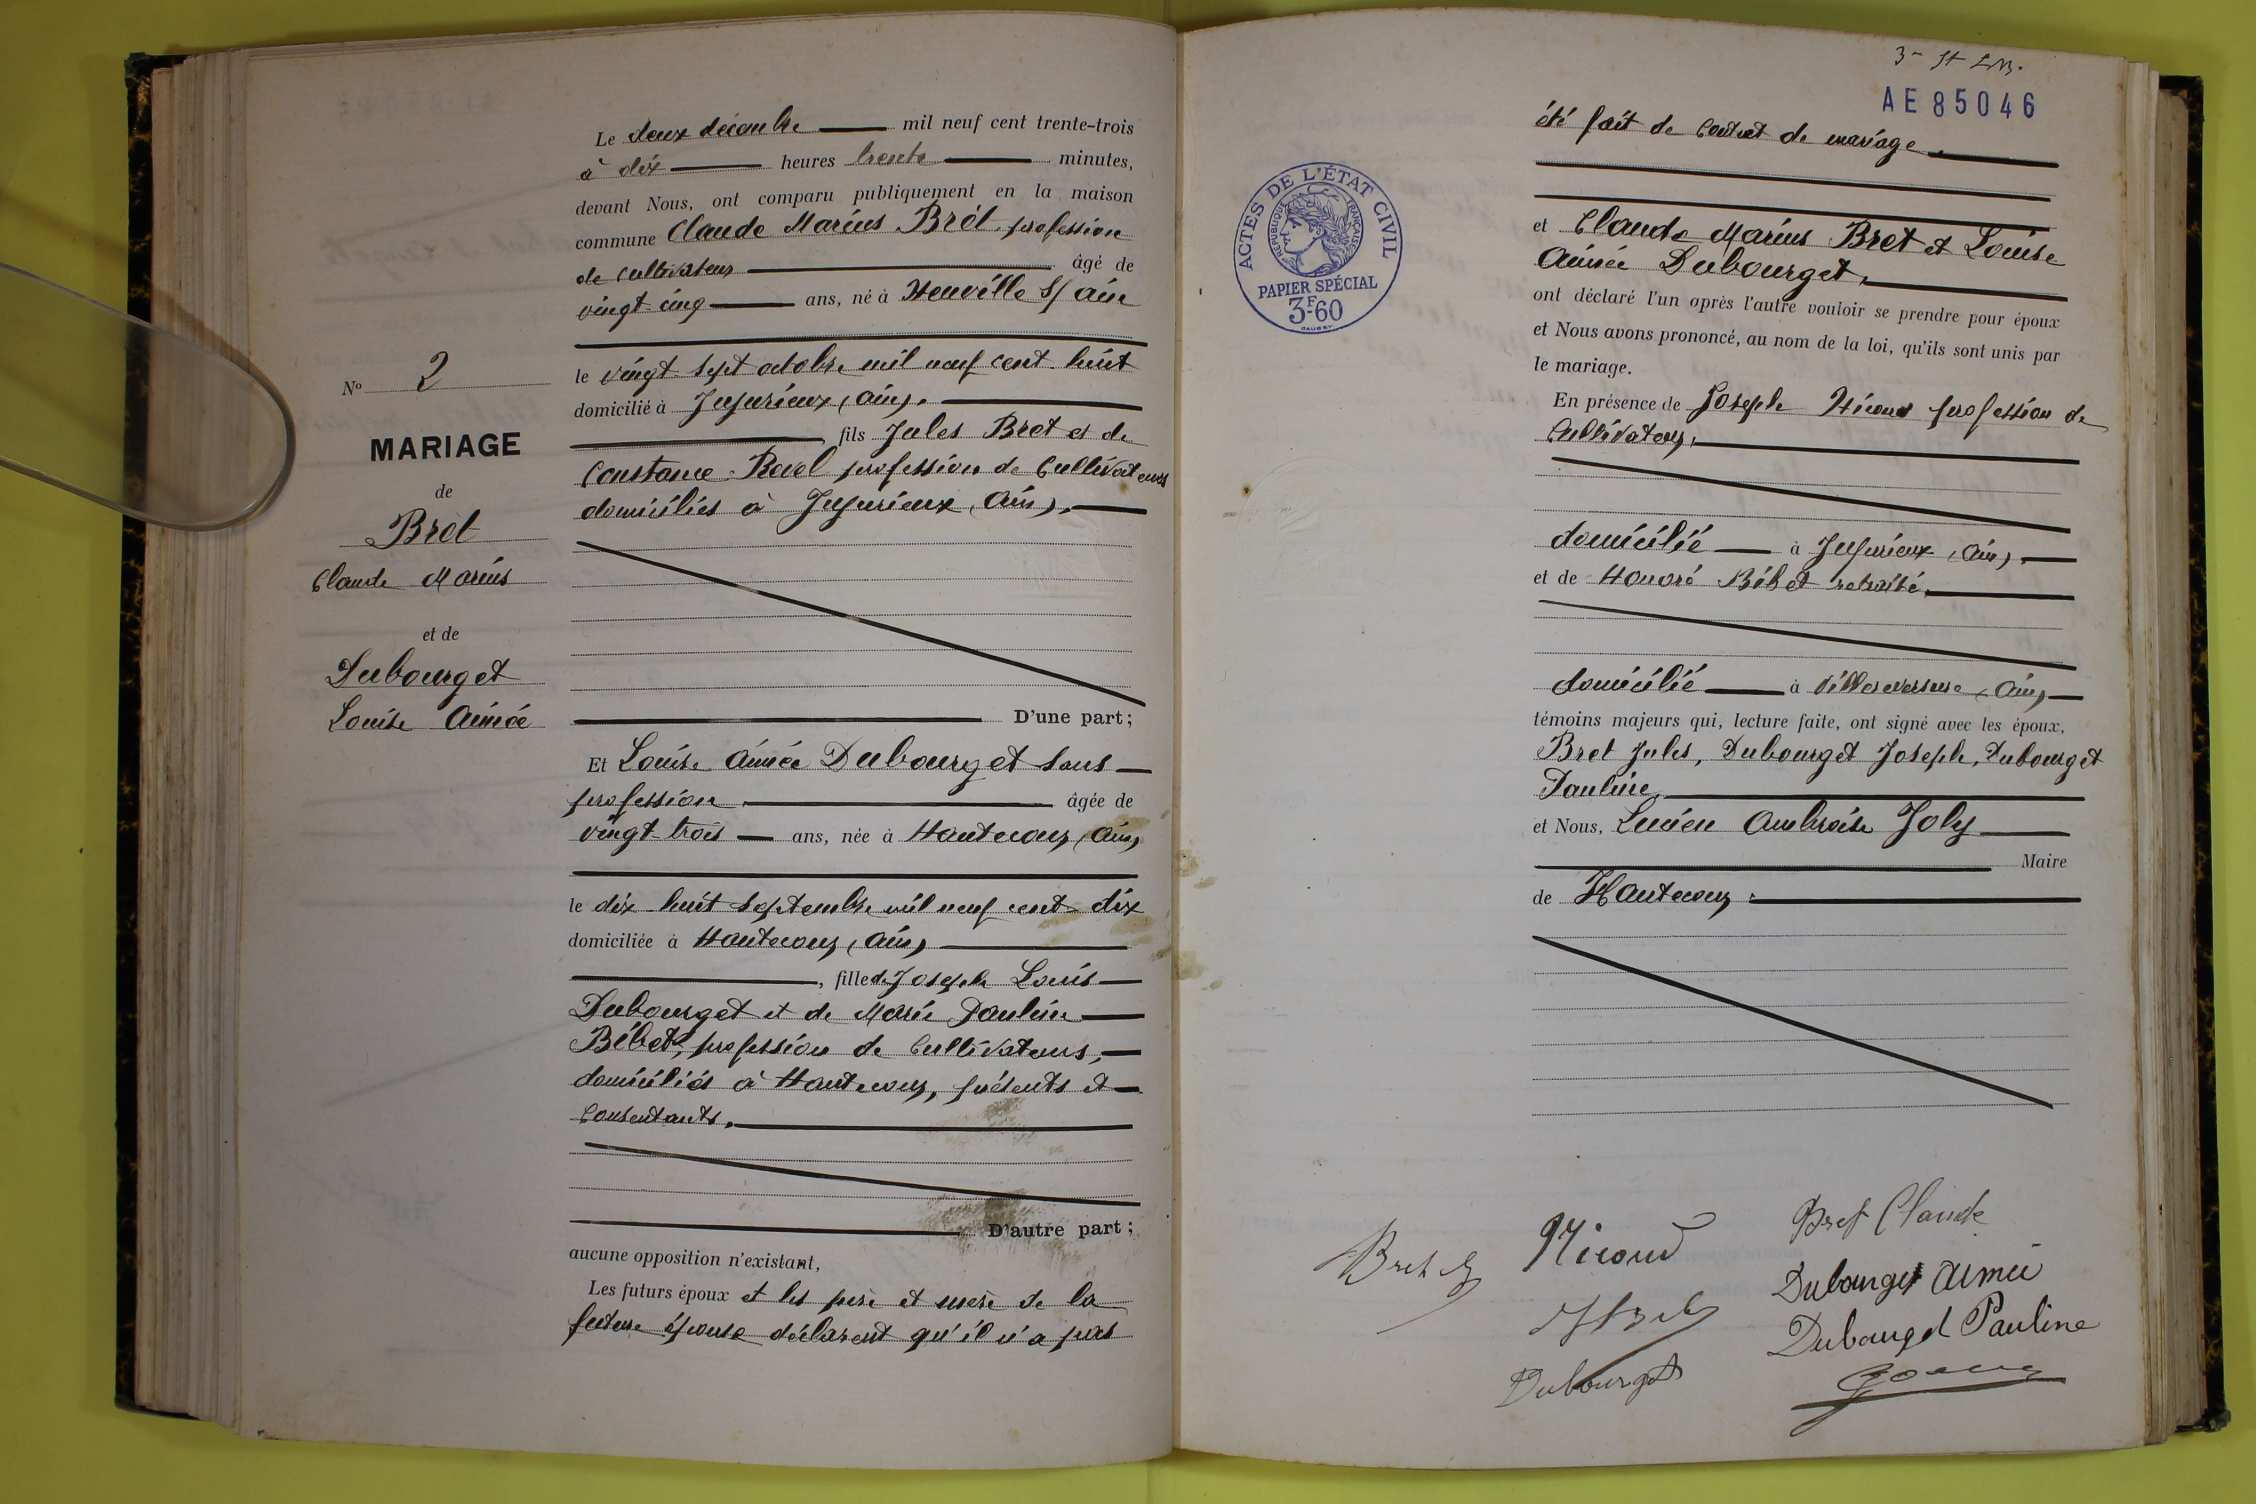 Le deux décembre mil neuf cent trente-trois
à dix heures trente minutes,
devant Nous, ont comparu publiquement en la maison
commune Claude Marius Bret, profession
de cultivateur âgé de
vingt-cinq ans, né à Neuville s/ Ain
le vingt-sept octobre mil neuf cent huit
domicilié à Jujurieux (Ain).
, fils Jules Bret et de
Constance Revel profession de Cultivateurs
domiciliés à Jujurieux (Ain).
D'une part;
Et Louise Aimée Dubourget sans
profession âgée de
vingt-trois ans, née à Hautecour (Ain)
le dix huit septembre mil neuf cent dix
domiciliée à Hautecour (Ain)
, fille de Joseph Louis
Dubourget et de Marie Pauline
Bébet, profession de Cultivateurs,
domiciliés à Hautecour, présents et
consentants.
D'autre part;
aucune opposition n'existant,
Les futurs époux et les père et mère de la
future épouse déclarent qu'il n'a pas
No 2
MARIAGE
de
Bret
Claude Marius
et de
Dubourget
Louise Aimée
AE 85046
ACTES DE L'ÉTAT CIVIL
RÉPUBLIQUE FRANÇAISE
PAPIER SPÉCIAL
3F-60
été fait de contrat de mariage.
et Claude Marius Bret et Louise
Aimée Dubourget,
ont déclaré l'un après l'autre vouloir se prendre pour époux
et Nous avons prononcé, au nom de la loi, qu'ils sont unis par
le mariage.
En présence de Joseph Nicoud profession de
Cultivateur,
domicilié à Jujurieux (Ain),
et de Honoré Bébet retraité,
domicilié à Villereversure (Ain)
témoins majeurs qui, lecture faite, ont signé avec les époux,
Bret Jules, Dubourget Joseph, Dubourget
Pauline,
et Nous, Lucien Ambroise Joly
Maire
de Hautecour :
Bret Claude
Nicoud
Bret
Dubourget Aimée
Dubourget Pauline
Dubourget